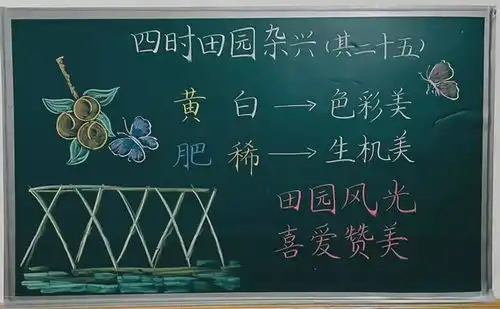 四时田园杂兴(其二十五)
黄 白→色彩美
肥 稀→生机美
田园风光
喜爱赞美